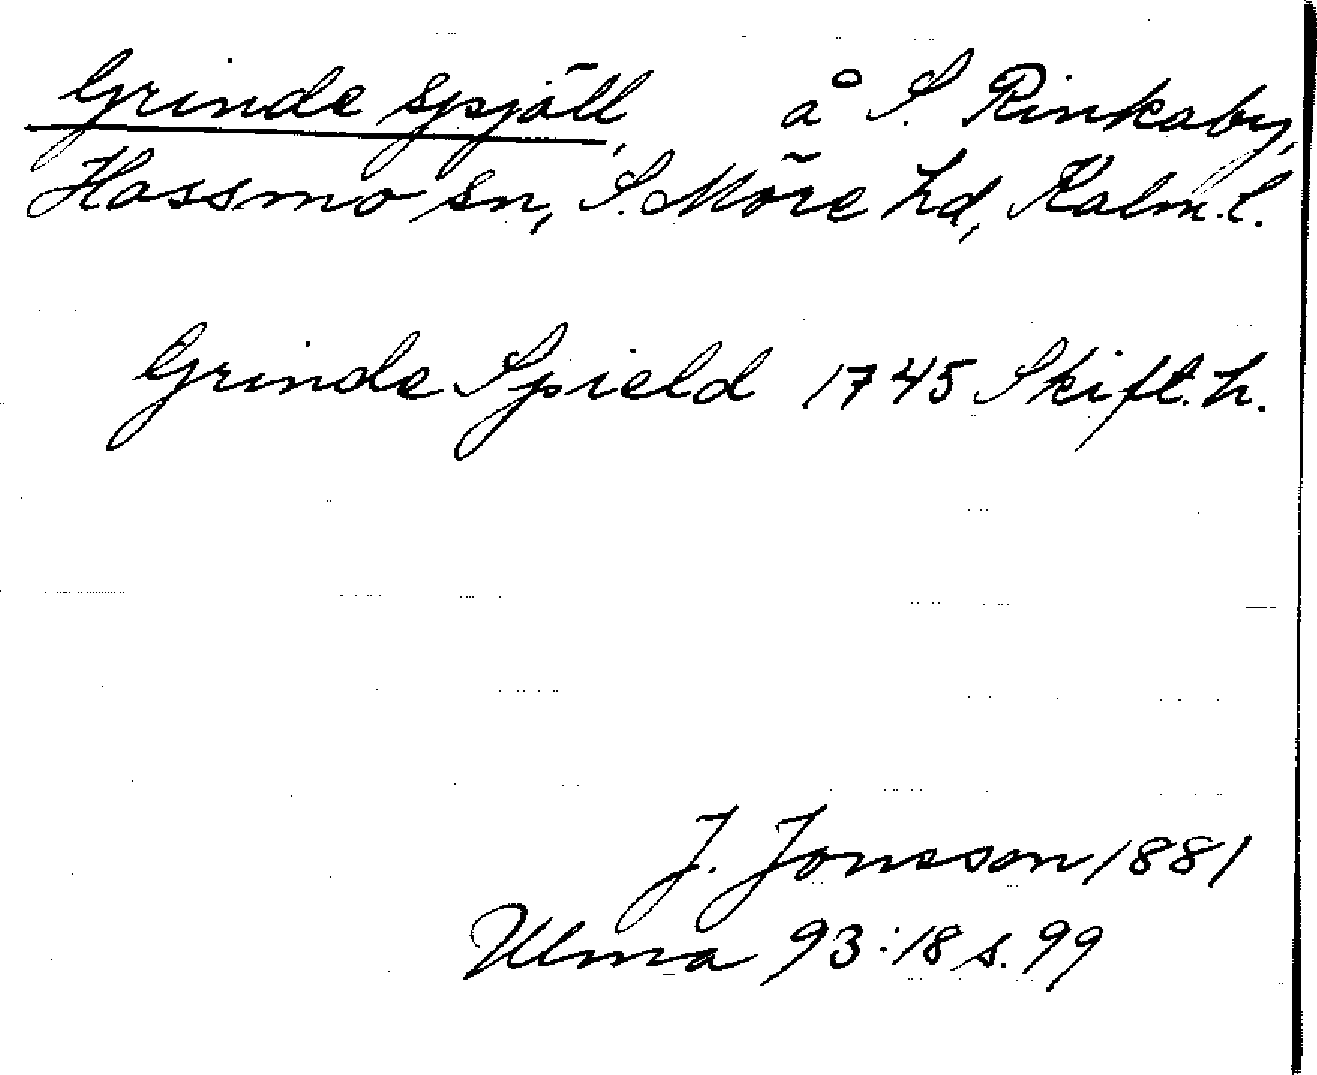 Grinde spjäll, å S. Rinkaby,
Hossmo sn, S. Möre hd, Kalm. l.
Grinde Spield 1745 Skift. h.
J. Jonsson 1881
Ulma 93:18 s. 99